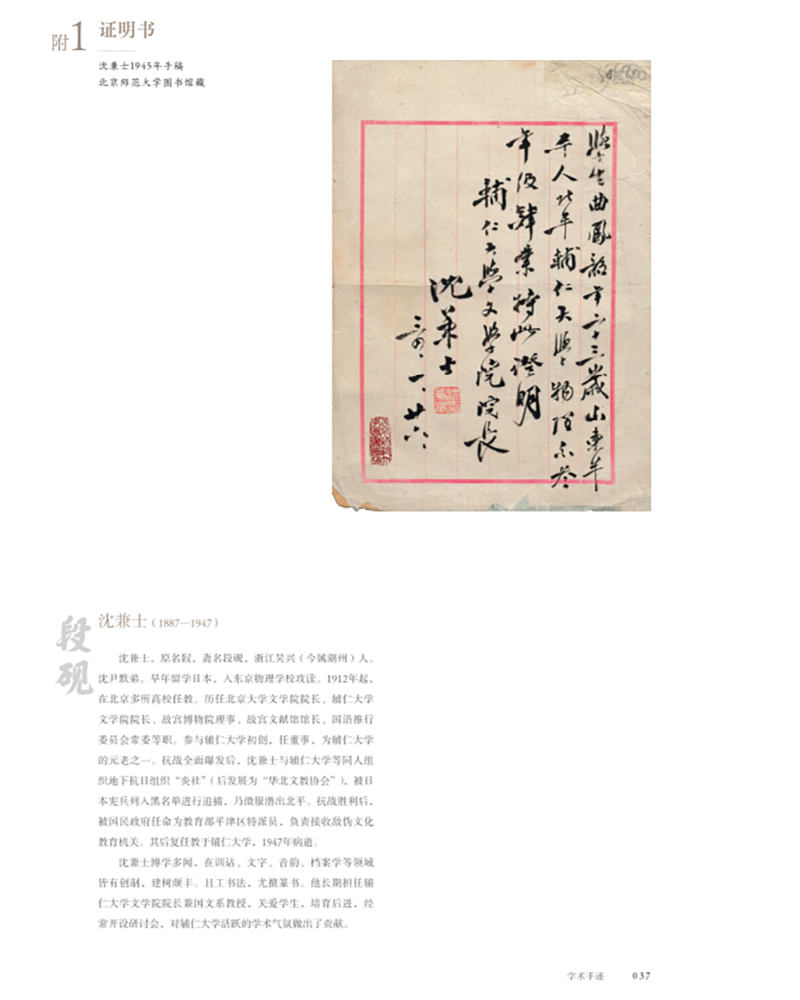 附1 证明书
沈兼士1945年手稿
北京师范大学图书馆藏
學生曲鳳韶年二十三歲山東牟
平人北年輔仁大學物理系叁
年級肄業特此證明
輔仁大學文學院院長
沈兼士
三四、一、廿六、
段砚
沈兼士（1887—1947）
沈兼士，原名臤，斋名段砚，浙江吴兴（今属湖州）人。
沈尹默弟。早年留学日本，入东京物理学校攻读。1912年起，
在北京多所高校任教。历任北京大学文学院院长、辅仁大学
文学院院长、故宫博物院理事、故宫文献馆馆长、国语推行
委员会常委等职。参与辅仁大学初创，任董事，为辅仁大学
的元老之一。抗战全面爆发后，沈兼士与辅仁大学等同人组
织地下抗日组织“炎社”（后发展为“华北文教协会”），被日
本宪兵列入黑名单进行追捕，乃微服潜出北平。抗战胜利后，
被国民政府任命为教育部平津区特派员，负责接收敌伪文化
教育机关。其后复任教于辅仁大学，1947年病逝。
沈兼士博学多闻，在训诂、文字、音韵、档案学等领域
皆有创制，建树颇丰。且工书法，尤擅篆书。他长期担任辅
仁大学文学院院长兼国文系教授，关爱学生，培育后进，经
常开设研讨会，对辅仁大学活跃的学术气氛做出了贡献。
学术手迹 037